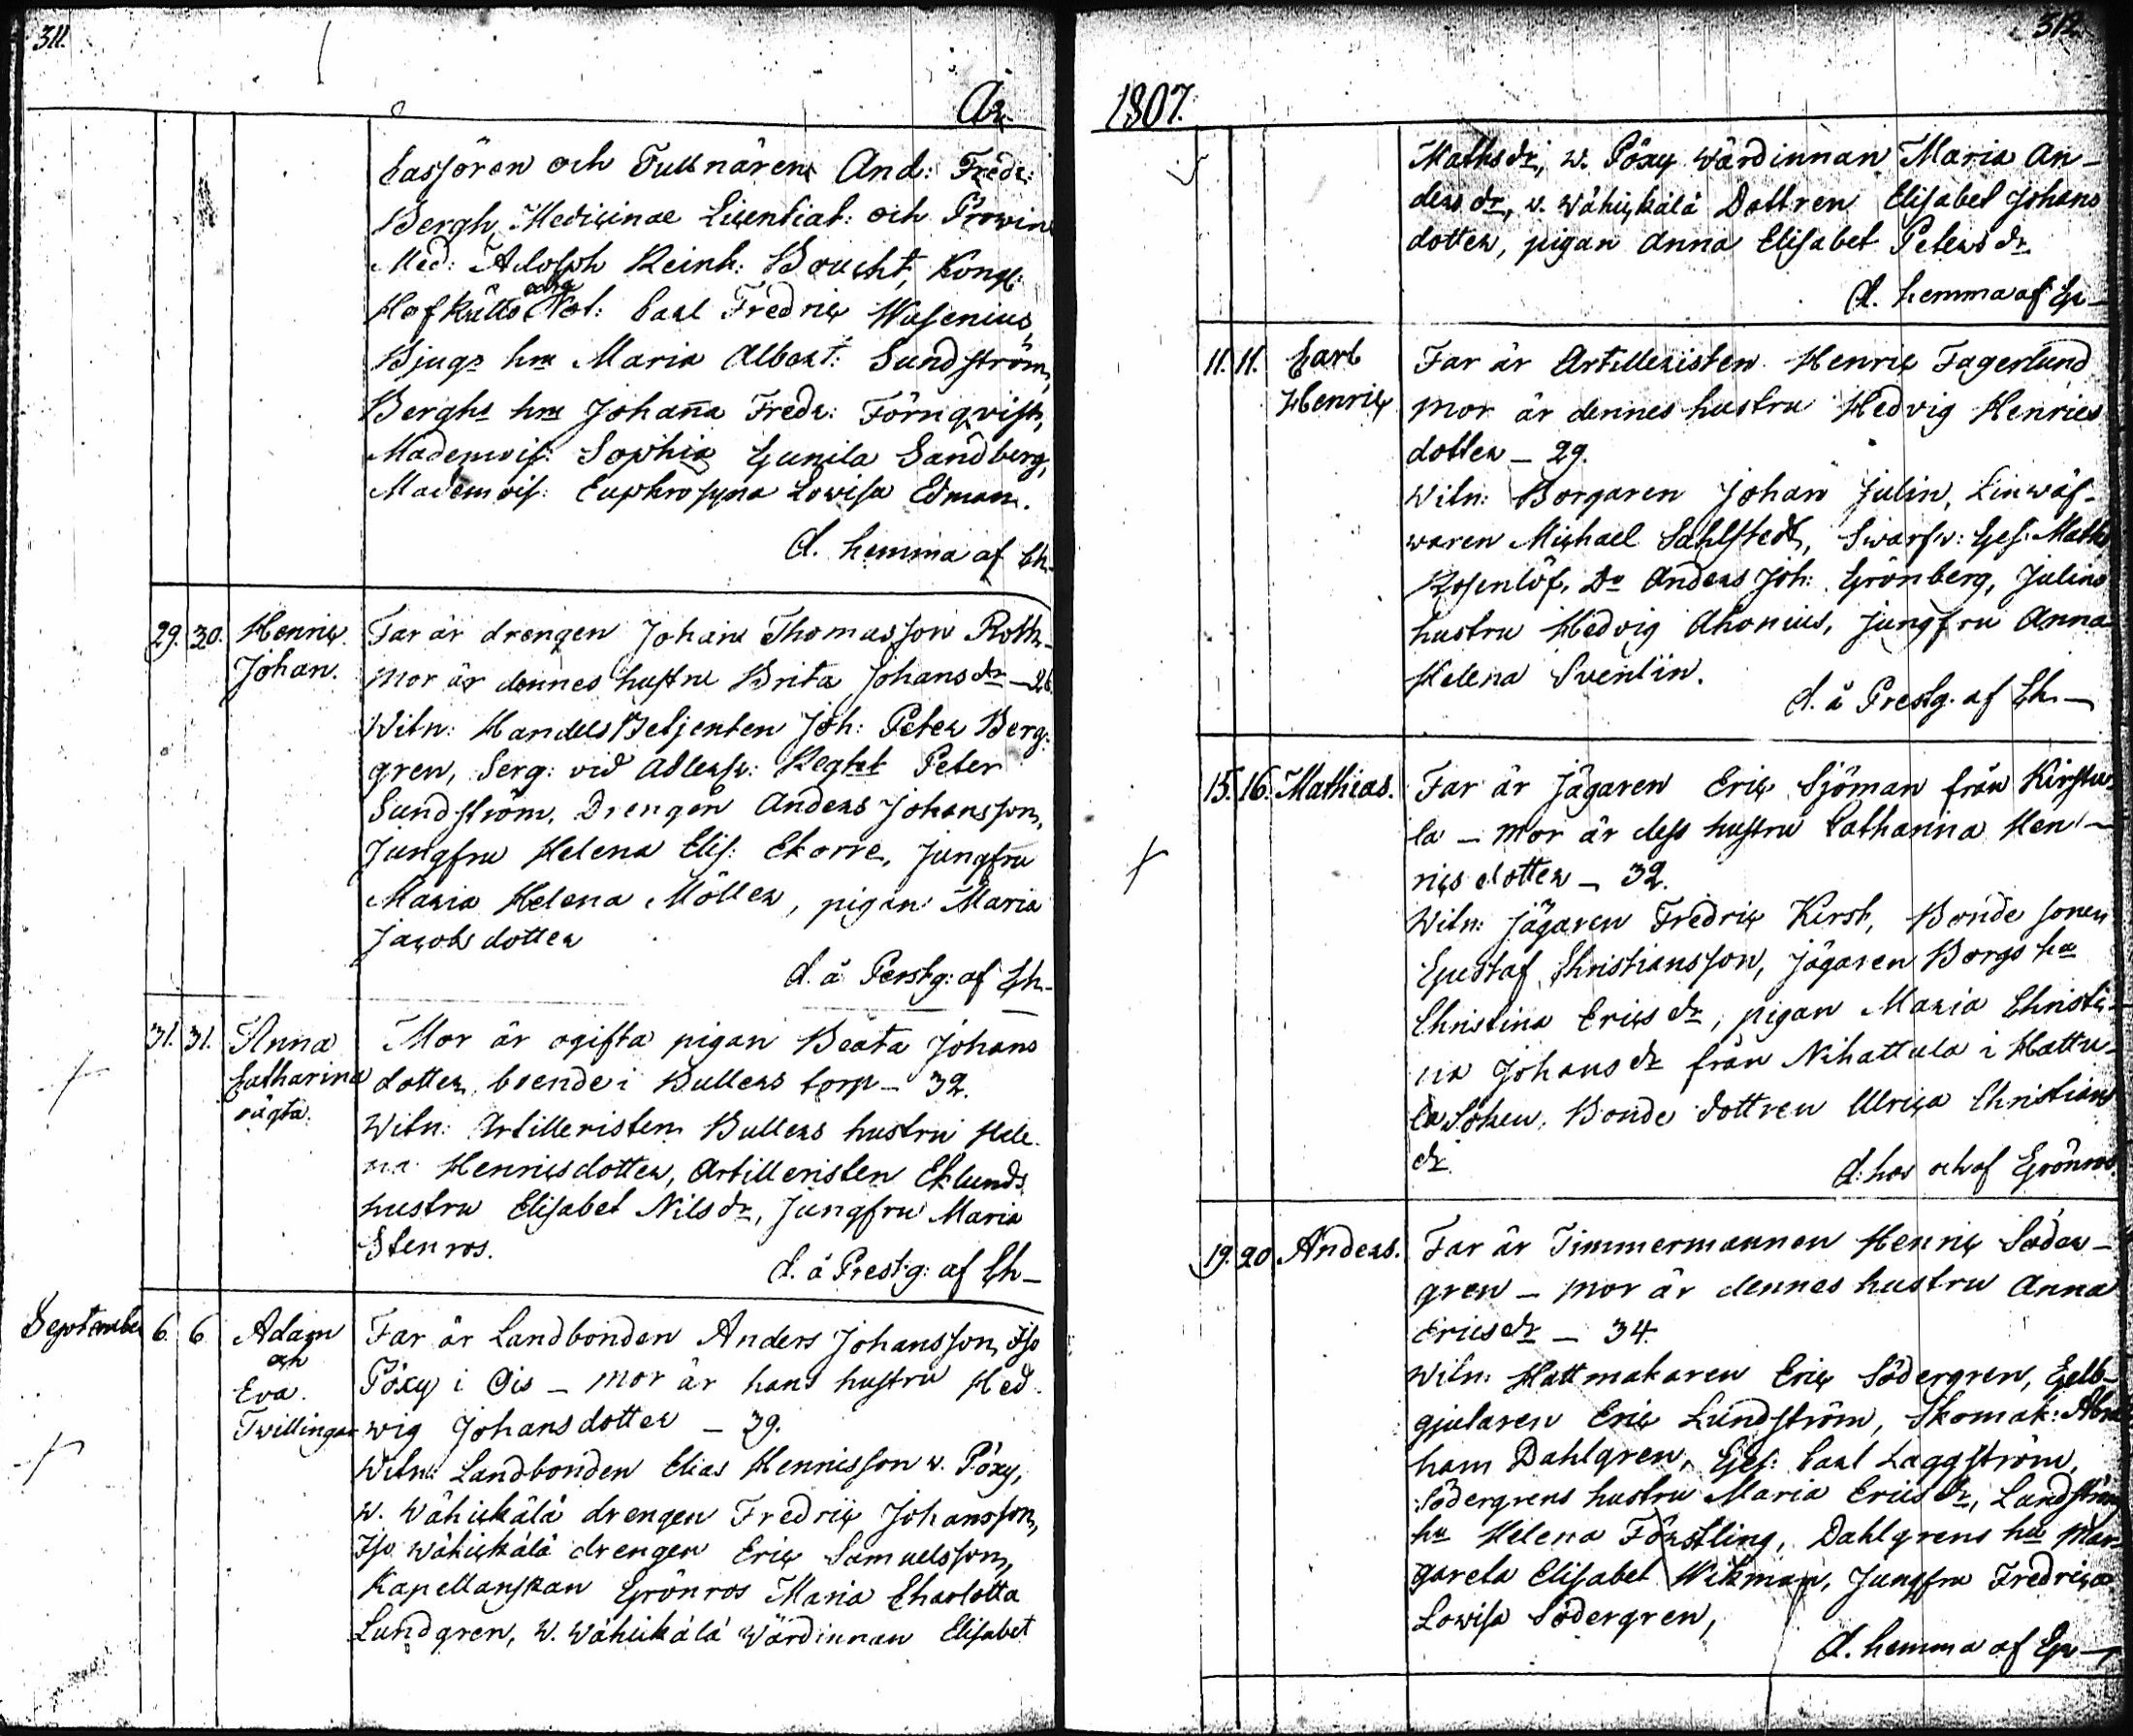 311.
År
Cassören och Tullnären And: Fredr:
Bergh, Medicinae Licentiat: och Provin
Med: Adolph Reinh: Boucht, Kongl:
Hofrätts extra Not: Carl Fredric Wasenius,
Bjugs hru Maria Albert: Sundström,
Berghs hru Johana Fredr: Törnqvist,
Mademois: Sophia Gunila Sandberg,
Mademois: Euphrosyna Lovisa Edman.
d. hemma af Ch-
29. 30. Henric Johan.
Far är drengen Johan Thomasson Roth-
mor är dennes hustru Brita Johans dr - 28.
Witn: Handels Betjenten Joh: Peter Berg:
gren, Serg: vid Adlersp: Reght Peter
Sundström, Drengen Anders Johansson,
Jungfru Helena Elis: Ekorre, Jungfru
Maria Helena Möller, pigan Maria
Jacobs dotter
d. å Perstg: af Ch-
31. 31. Anna Catharina oägta.
Mor är ogifta pigan Beata Johans
dotter, boende i Bullers torp - 32.
Witn: Artilleristen Bullers hustru Hele-
na Henricsdotter, Artilleristen Eklunds
hustru Elisabet Nils dr, Jungfru Maria
Stenros.
d. å Prestg: af Ch-
September 6. 6. Adam och Eva. Twillingar
Far är Landbonden Anders Johansson, Iso
Pöxy i Ois - mor är hans hustru Hed-
wig Johansdotter - 39.
Witn: Landbonden Elias Henricsson w. Pöxy,
w. Wähickälä drengen Fredric Johansson,
Iso Wähickälä drengen Eric Samuelsson,
Kapellanskan Grönros Maria Charlotta
Lundgren, w. Wähickälä Wärdinnan Elisabet
312.
1807.
Mathsdr, w. Pöxy Wärdinnan Maria An-
ders dr, w. Wähickälä Dottren Elisabet Johans
dotter, pigan Anna Elisabet Peters dr
d. hemma af Gr-
11. 11. Carl Henric
Far är Artilleristen Henric Fagerlund
mor är dennes hustru Hedvig Henrics
dotter - 29.
Witn: Borgaren Johan Julin, Linwäf-
waren Michael Sahlstedt, Swarfw: Ges: Maths
Rosenlöf, Do Anders Joh: Grönberg, Julins
hustru Hedvig Ahonius, Jungfru Anna
Helena Sventin.
d. å Prestg. af Ch-
15. 16. Mathias.
Far är Jägaren Eric Sjöman från Kirstu-
la - mor är dess hustru Catharina Hen-
rics dotter - 32.
Witn: Jägaren Fredric Kerst, Bonde sonen
Gustaf Christiansson, Jägaren Borgs hu
Christina Erics dr, pigan Maria Christi-
na Johans dr från Nihattula i Hattu-
la Soken, Bonde dottren Ulrica Christians
dr.
d: hos och af Grönros.
19. 20 Anders.
Far är Timmermannen Henric Söder-
gren - mor är dennes hustru Anna
Erics dr - 34.
Witn: Hattmakaren Eric Södergren, Gelb-
gjutaren Eric Lundström, Skomak: Abra
ham Dahlgren, Ges: Carl Laggström,
Södergrens hustru Maria Erics dr, Lundströms
hu Helena Förstling, Dahlgrens hu Mar-
gareta Elisabet Wikman, Jungfru Fredrica
Lovisa Södergren,
d. hemma af Gr-